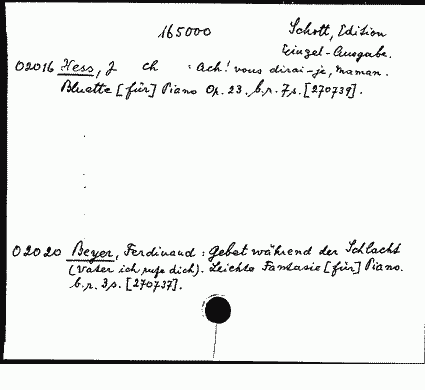 165000
Schott, Edition
Einzel-Ausgabe.
02016 Hess, J Ch : Ach! vous dirai-je, Maman.
Bluette [für] Piano Op. 23. b.r. 7s. [270739].
02020 Beyer, Ferdinand : Gebet während der Schlacht
(Vater ich rufe dich). Leichte Fantasie [für] Piano.
b.r. 3s. [270737].